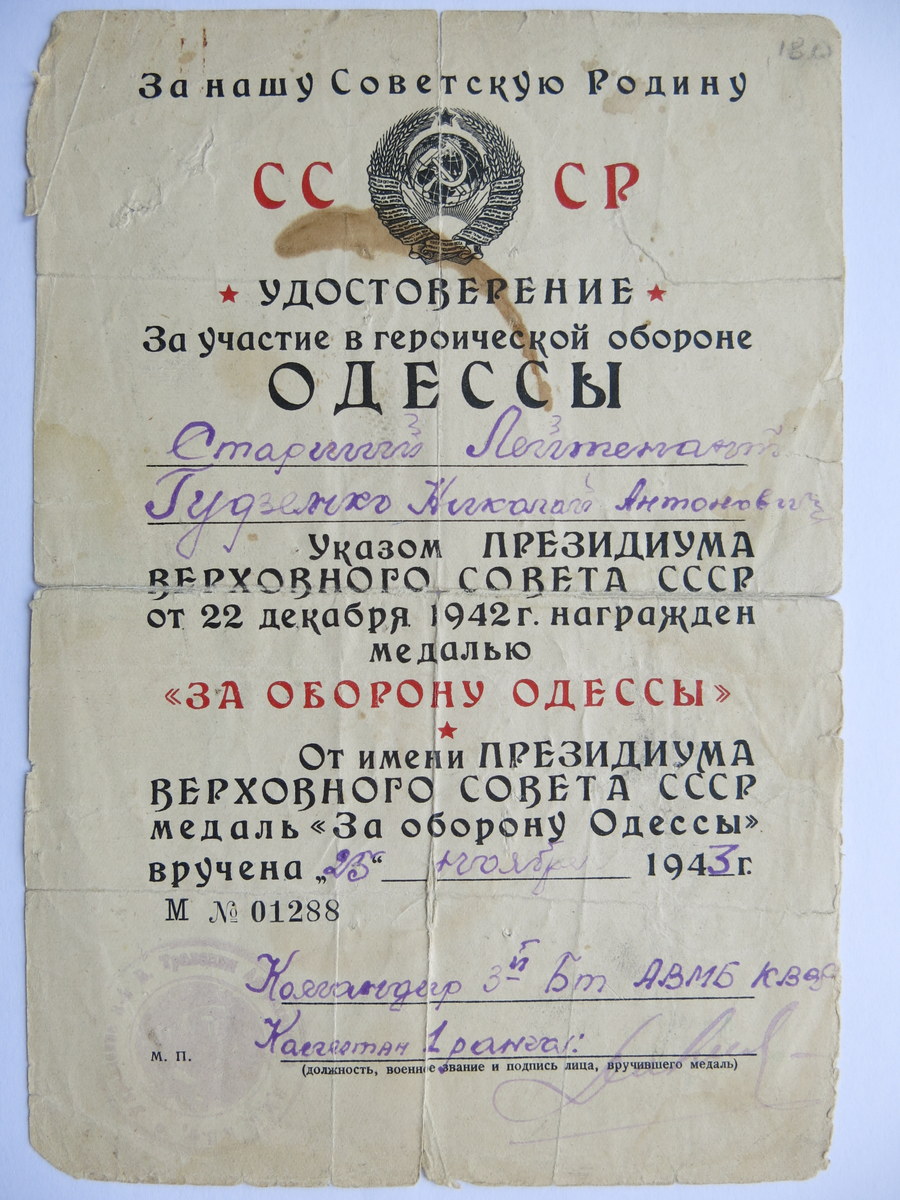 18.0
За нашу Советскую Родину
СС СР
УДОСТОВЕРЕНИЕ
За участие в героической обороне
ОДЕССЫ
Старший Лейтенант
Гудзенко Николай Антонович
Указом ПРЕЗИДИУМА
ВЕРХОВНОГО СОВЕТА СССР
от 22 декабря 1942 г. награжден
медалью
«ЗА ОБОРОНУ ОДЕССЫ»
От имени ПРЕЗИДИУМА
ВЕРХОВНОГО СОВЕТА СССР
медаль «За оборону Одессы»
вручена „25“ ноября 1943 г.
М № 01288
Командир 3й Бт АВМБ КВФ
Капитан 1 ранга:
М. П.
(должность, военное звание и подпись лица, вручившего медаль)